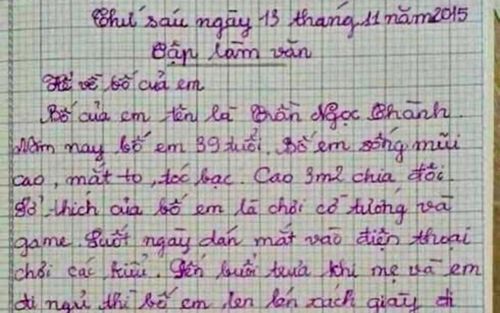 Thứ sáu ngày 13 tháng 11 năm 2015
Tập làm văn
Kể về bố của em
Bố của em tên là Trần Ngọc Thành.
Năm nay bố em 39 tuổi. Bố em sống mũi
cao, mắt to, tóc bạc. Cao 3m2 chia đôi.
Sở thích của bố em là chơi cờ tướng và
game. Suốt ngày dán mắt vào điện thoại
chơi các kiểu. Đến buổi trưa khi mẹ và em
đi ngủ thì bố em len lén xách giày đi